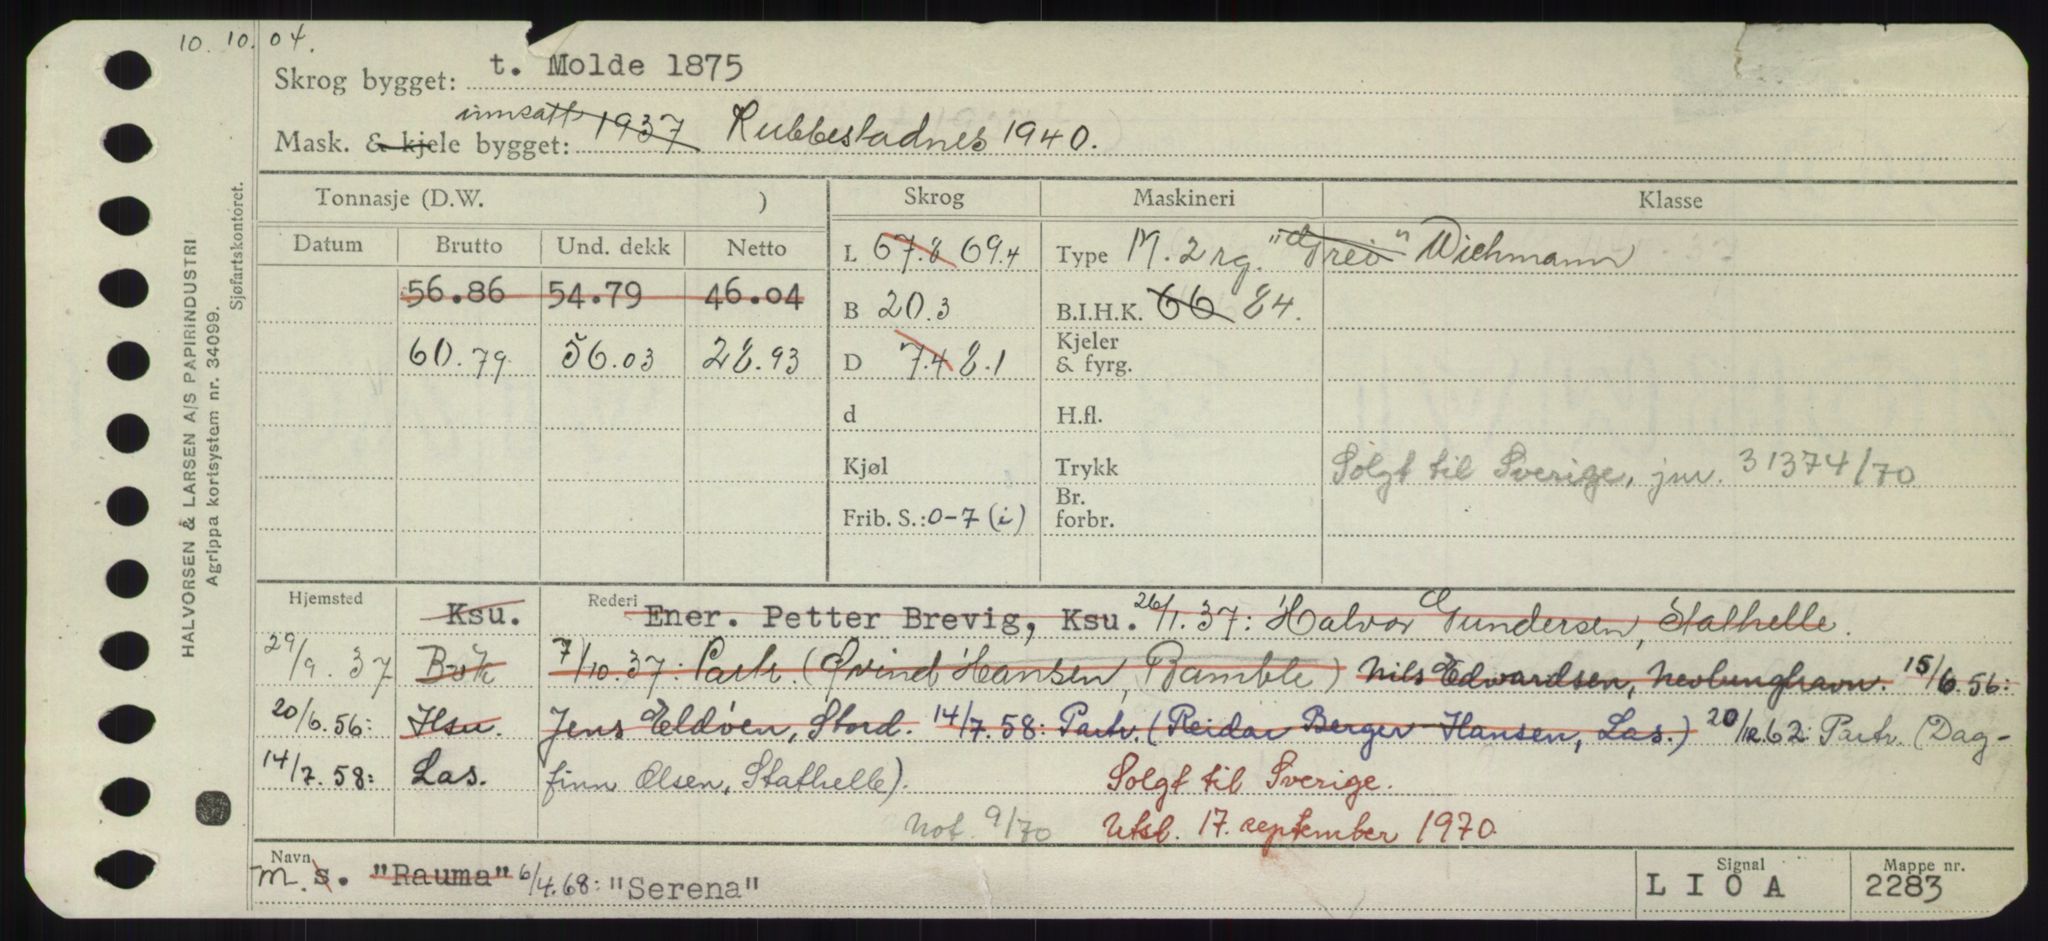 10. 10. 04.
Skrog bygget: t. Molde 1875
innsatt
Mask. & kjele bygget: 1937 Rubbestadnes 1940.
Tonnasje (D.W. )
Skrog
Maskineri
Klasse
Datum Brutto Und. dekk Netto
L 67.8 69.4
Type M. 2 rg. "Grei" Wichmann
56.86 54.79 46.04
B 20.3
B.I.H.K. 66 84.
60.79 56.03 28.93
D 7.4 8.1
Kjeler & fyrg.
d
H.fl.
Kjøl
Trykk
Solgt til Sverige, jnr. 31374/70
Frib. S.: 0-7 (i)
Br. forbr.
HALVORSEN & LARSEN A/S PAPIRINDUSTRI
Agrippa kortsystem nr. 34099.
Sjøfartskontoret.
Hjemsted Ksu. Rederi Ener. Petter Brevig, Ksu. 26/1.37: Halvor Gundersen, Stathelle.
29/9.37 Brk 7/10.37: Partr. (Øvind Hansen, Bamble) Nils Edvardsen, Nevlunghavn. 15/6.56:
20/6.56: Hsu. Jens Eldøen, Stord. 14/7.58: Partr. (Reidar Berger Hansen, Las.) 20/12 62: Partr. (Dag-
14/7.58: Las. finn Olsen, Stathelle). Solgt til Sverige.
Not. 9/70 Utsl. 17. september 1970.
Navn
M. s. "Rauma" 6/4.68: "Serena"
Signal
L I O A
Mappe nr.
2283